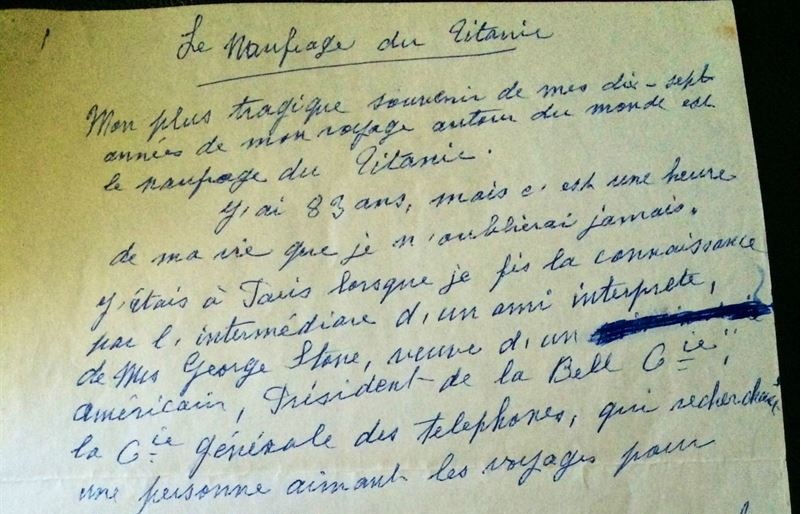 Le Naufrage du Titanic
Mon plus tragique souvenir de mes dix-sept
années de mon voyage autour du monde est
le naufrage du Titanic.
J'ai 83 ans, mais c'est une heure
de ma vie que je n'oublierai jamais.
J'étais à Paris lorsque je fis la connaissance
par l'intermédiare d'un ami interprète,
de Mrs George Stone, veuve d'un
américain, Président de la Bell Cie",
la Cie générale des telephones, qui recherchait
une personne aimant les voyages pour